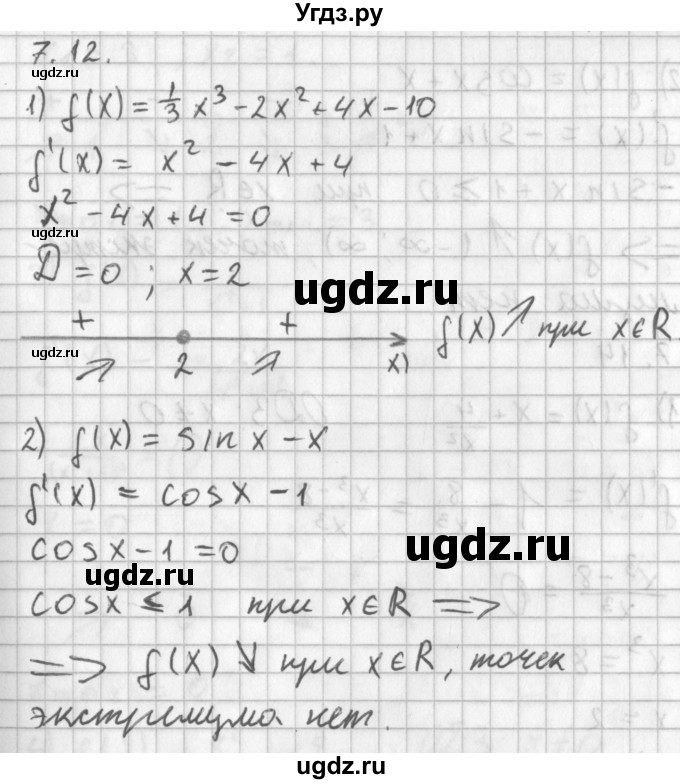 Угдз.ру
7.12.
ugdz.ru
1) f(x) = 1/3 x³ - 2x² + 4x - 10
f'(x) = x² - 4x + 4
x² - 4x + 4 = 0
ugdz.ru
D = 0 ; x = 2
ugdz.ru
+ +
f(x) ↗ при x∈R.
ugdz.ru
↗ 2 ↗ x)
2) f(x) = sin x - x
ugdz.ru
f'(x) = cosx - 1
cosx - 1 = 0
ugdz.ru
ugdz.ru
cosx ≤ 1 при x∈R =>
=> f(x) ↘ при x∈R, точек
экстремума нет.
ugdz.ru